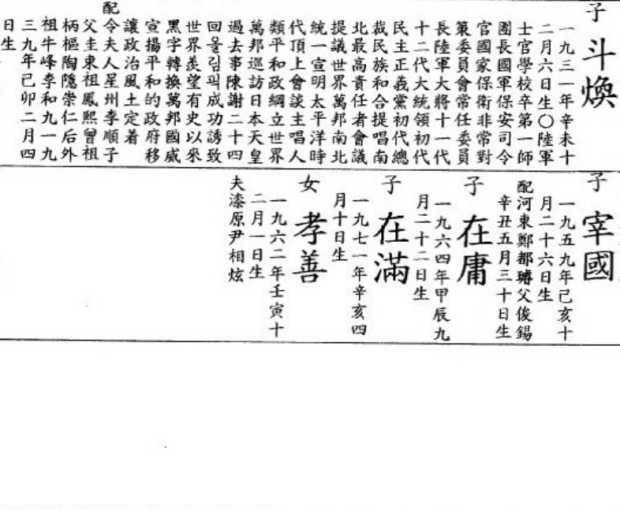 子 斗煥
一九三一年辛未十
二月六日生〇陸軍
士官學校卒第一師
團長國軍保安司令
官國家保衛非常對
策委員會常任委員
長陸軍大將十一代
十二代大統領初代
民主正義黨初代總
裁民族和合提唱南
北最高責任者會議
提議世界萬邦南北
統一宣明太平洋時
代頂上會談主唱人
類平和政綱立世界
萬邦巡訪日本天皇
過去事陳謝二十四
回올림픽成功誘致
世界羨望有史以來
黑字轉換萬邦國威
宣揚平和的政府移
讓政治風土定着
配
令夫人星州李順子
父圭東祖鳳熙曾祖
柄樞陶隱崇仁后外
祖牛峰李和九一九
三九年己卯二月四
日生
子 宰國
一九五九年己亥十
月二十六日生
配河東鄭都父俊錫
辛丑五月三十日生
子 在庸
一九六四年甲辰九
月二十二日生
子 在滿
一九七一年辛亥四
月十日生
女 孝善
一九六二年壬寅十
二月一日生
夫漆原尹相炫